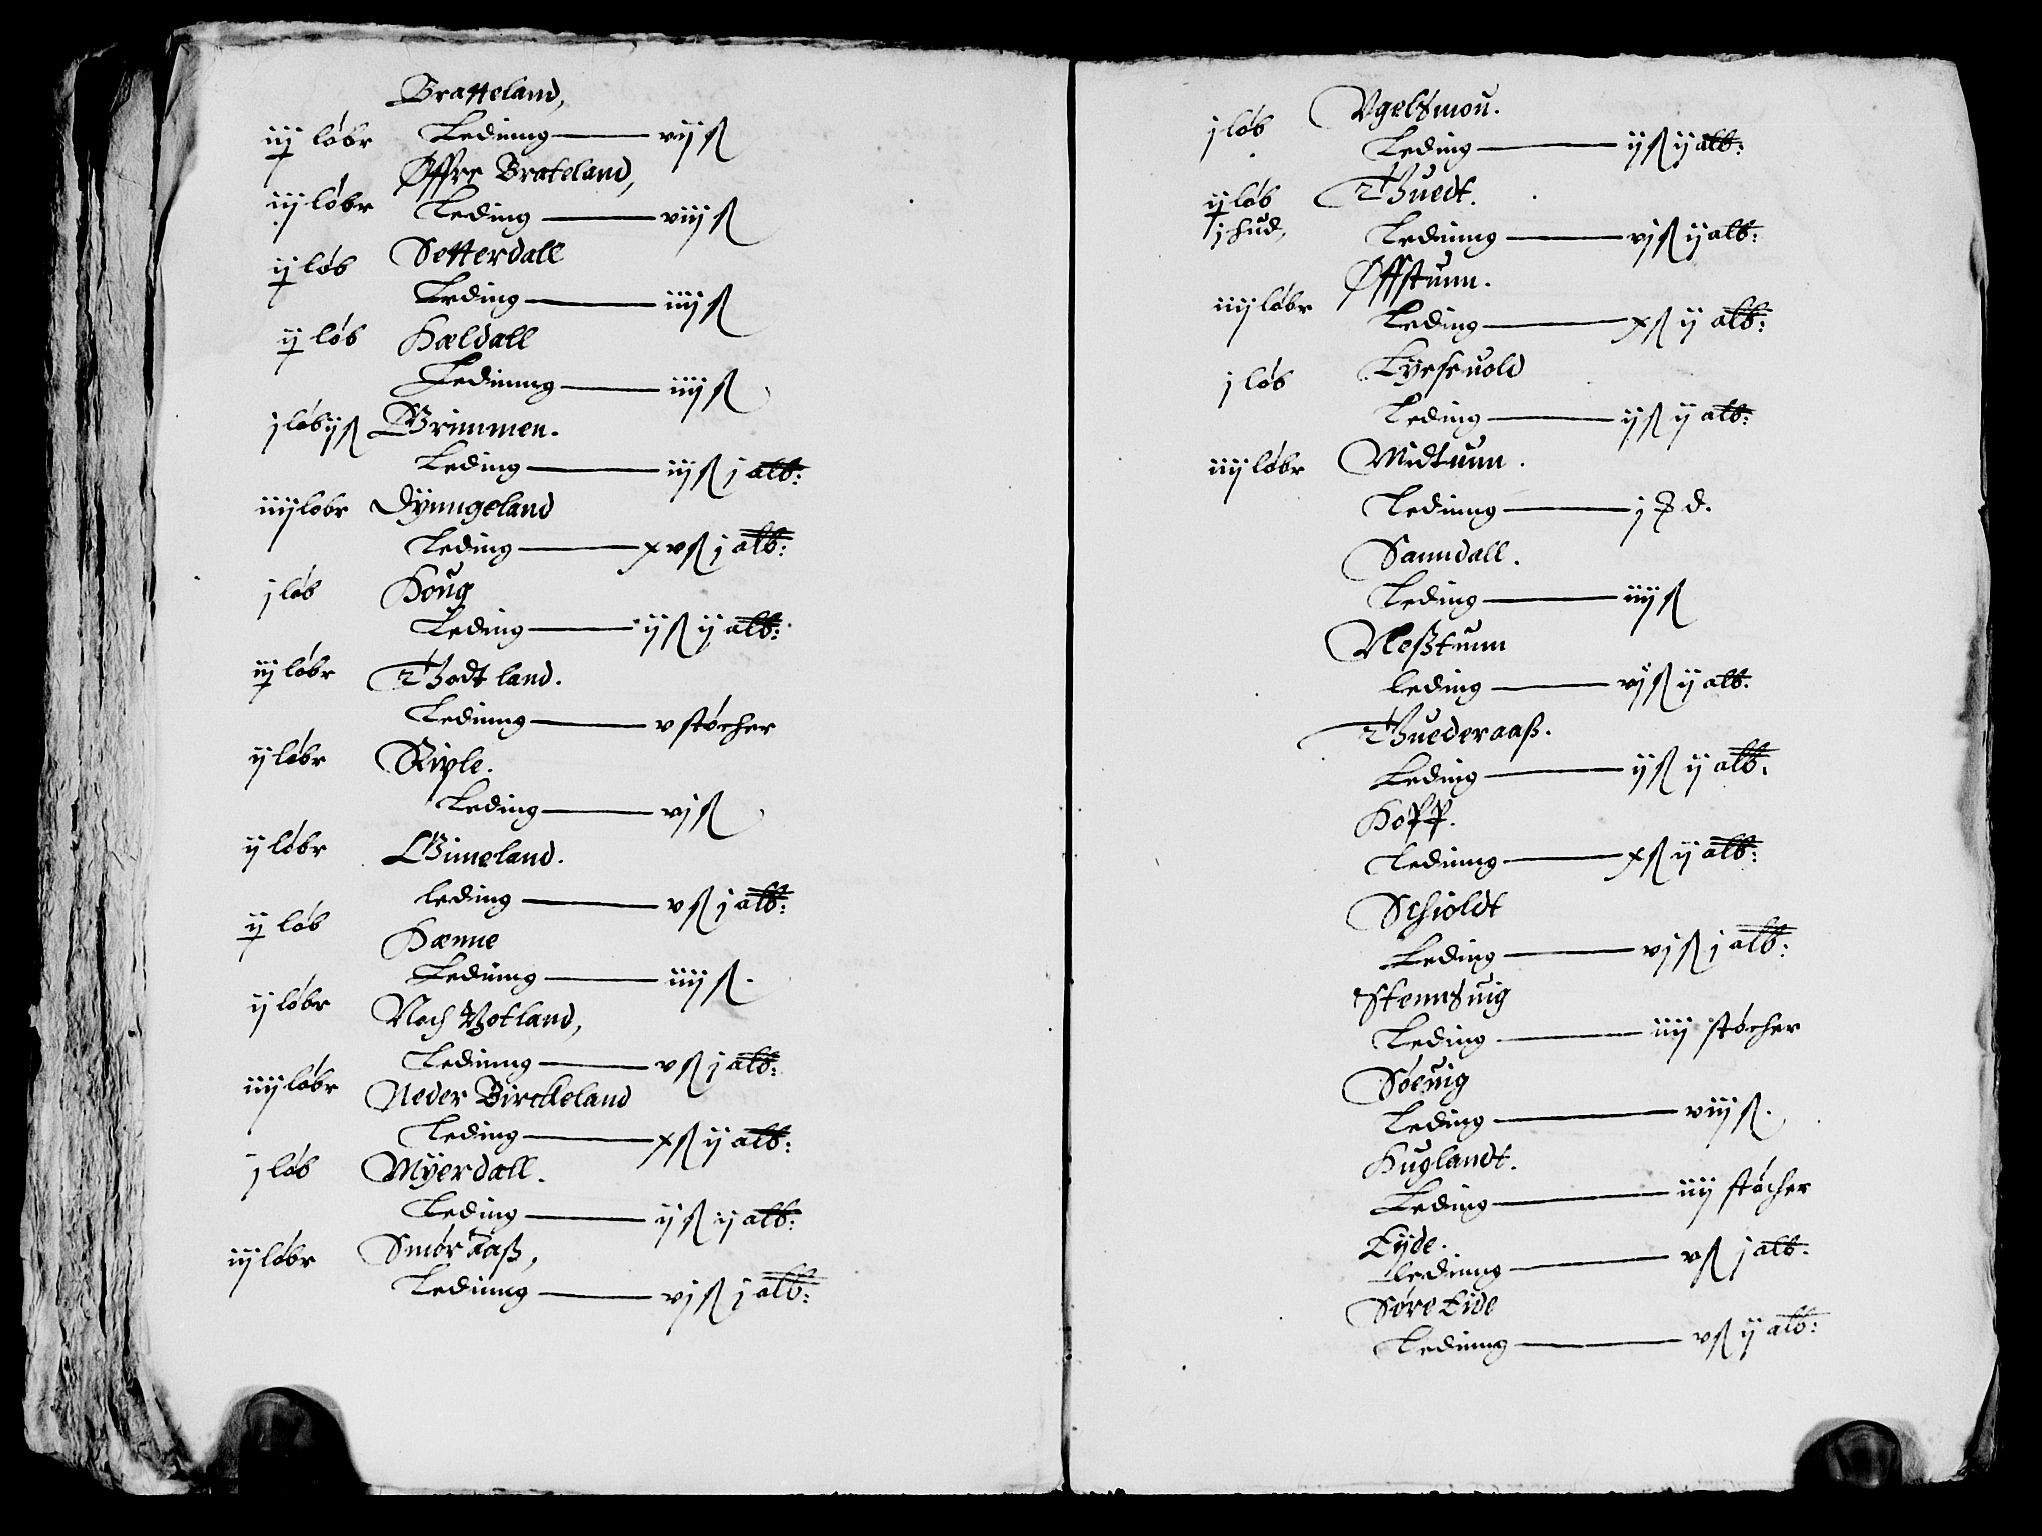 Bratteland,
iij løbr Ledinng — vij ß
Øffre Brateland,
iij løbr Leding — viij ß
ij løb Setterdall
Leding — iiij ß
ij løb Hældall
Ledinng — iiij ß
j løb ij ß Grimmen.
Leding — iij ß j alb:
iiij løbr Dynngeland
Leding — xv ß j alb:
j løb Houg
Leding — ij ß ij alb:
iij løbr Thodtland.
Ledinng — v støcher
ij løbr Riple.
Leding — vj ß
ij løbr Gimeland.
leding — v ß j alb:
ij løb Hænne
Ledinng — iiij ß.
ij løbr Noch Votland,
Ledinng — v ß j alb:
iiij løbr Neder Birckeland
Leding — x ß ij alb:
j løb Myerdall.
Leding — ij ß ij alb:
iij løbr Smør Aaß,
Ledinng — vj ß j alb:
j løb Vgelsmou.
Leding — ij ß ij alb:
ij løb Thuedt.
j hud, Ledinng — vj ß ij alb:
iiij løbr Øffstunn.
Leding — x ß ij alb:
j løb Eyrseuold
Leding — ij ß ij alb:
iiij løbr Midtunn.
Ledinng — j d.
Sanndall.
Leding — iiij ß
Neßtunn
leding — vj ß ij alb:
Thuederaaß.
Leding — ij ß ij alb.
Hopp.
Ledinng — x ß ij alb:
Schioldt
Leding — vj ß j alb:
Stennsuig
Leding — iiij støcher
Søeuig
Leding — viij ß.
Huglandt.
Leding — iiij støcher
Eyde.
Ledinng — v ß j alb.
Søre Eide
Ledinng — v ß ij alb: